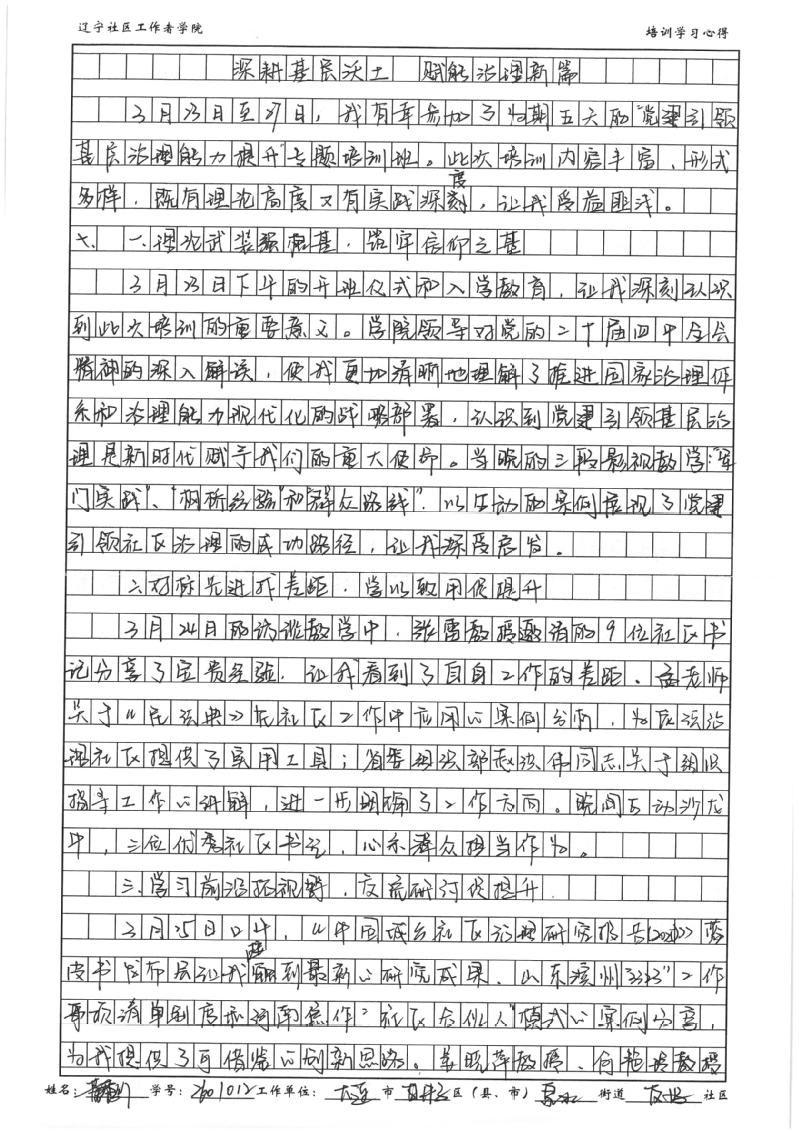 辽宁社区工作者学院 培训学习心得
深耕基层沃土 赋能治理新篇
3月23日至27日，我有幸参加了为期五天的"党建引领
基层治理能力提升"专题培训班。此次培训内容丰富、形式
多样，既有理论高度又有实践深度，让我受益匪浅。
一、理论武装强根基，筑牢信仰之基
3月23日下午的开班仪式和入学教育，让我深刻认识
到此次培训的重要意义。学院领导对党的二十届四中全会
精神的深入解读，使我更加清晰地理解了推进国家治理体
系和治理能力现代化的战略部署，认识到党建引领基层治
理是新时代赋予我们的重大使命。当晚的三段影视教学"军
门实践"、"枫桥经验"和"群众路线"，以生动的案例展现了党建
引领社区治理的成功路径，让我深受启发。
二、对标先进找差距，学以致用促提升
3月24日的访谈教学中，张雷教授邀请的9位社区书
记分享了宝贵经验，让我看到了自身工作的差距。孟老师
关于《民法典》在社区工作中应用的案例分析，为依法治
理社区提供了实用工具；省委组织部赵洪伟同志关于组织
指导工作的讲解，进一步明确了工作方向。晚间互动沙龙
中，三位优秀社区书记，心系群众担当作为。
三、学习前沿拓视野，交流研讨促提升
3月25日上午，《中国城乡社区治理研究报告(2024)》蓝
皮书发布会让我了解到最新的研究成果，山东滨州"3343"工作
事项清单制度和河南焦作"社区合伙人"模式的案例分享，
为我提供了可借鉴的创新思路。姜晓萍教授、向艳玲教授
姓名： 学号：2601012 工作单位：大连市 区（县、市） 街道 友好 社区